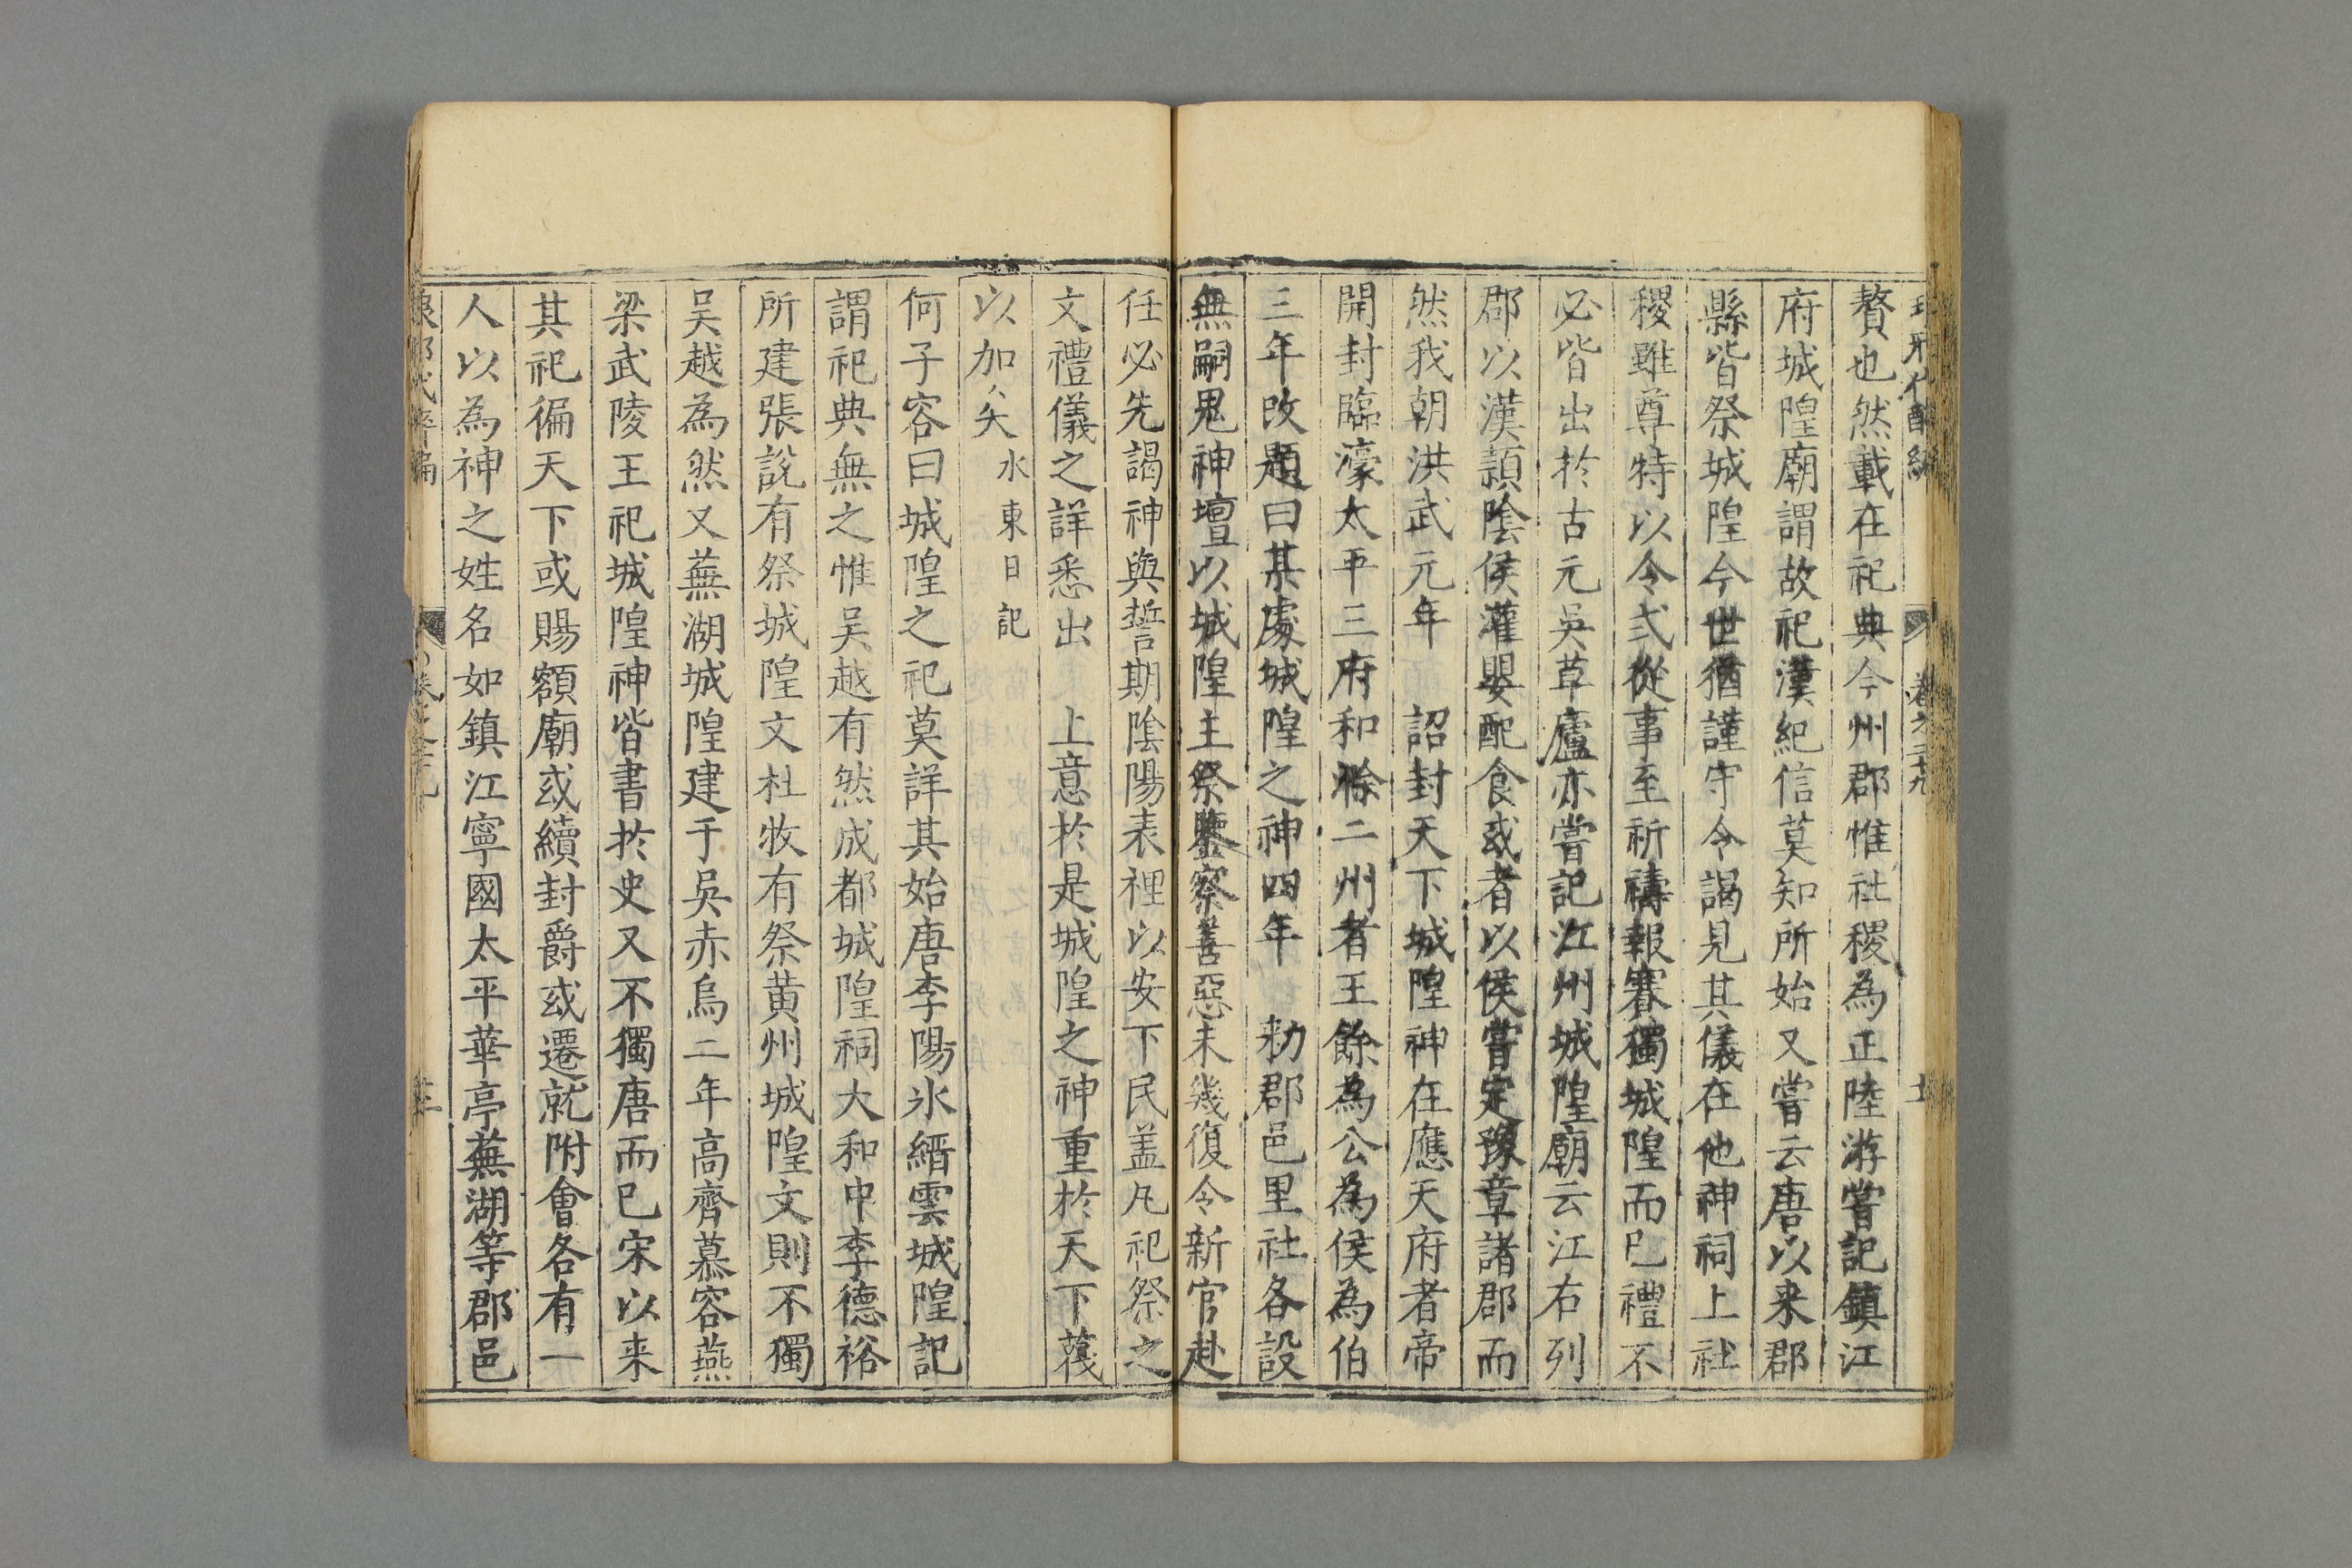 贅也然載在祀典今州郡惟社稷為正陸游嘗記鎮江
府城隍廟謂故祀漢紀信莫知所始又嘗云唐以来郡
縣皆祭城隍今世猶謹守令謁見其儀在他神祠上社
稷雖尊特以令式從事至祈禱報賽獨城隍而已禮不
必皆出於古元吳草廬亦嘗記江州城隍廟云江右列
郡以漢頴陰侯灌嬰配食或者以侯嘗定豫章諸郡而
然我朝洪武元年 詔封天下城隍神在應天府者帝
開封臨濠太平三府和滁二州者王餘為公為侯為伯
三年改題曰某處城隍之神四年 勑郡邑里社各設
無嗣鬼神壇以城隍主祭鑒察善惡未幾復令新官赴
任必先謁神與誓期陰陽表裡以安下民盖凡祀祭之
文禮儀之詳悉出 上意於是城隍之神重於天下蔑
以加矣 水東日記
何子容曰城隍之祀莫詳其始唐李陽氷縉雲城隍記
謂祀典無之惟吴越有然成都城隍祠大和中李德裕
所建張說有祭城隍文杜牧有祭黄州城隍文則不獨
吴越為然又蕪湖城隍建于吳赤烏二年高齊慕容燕
梁武陵王祀城隍神皆書於史又不獨唐而已宋以来
其祀徧天下或賜額廟或續封爵或遷就附會各有一
人以為神之姓名如鎮江寧國太平華亭蕪湖等郡邑